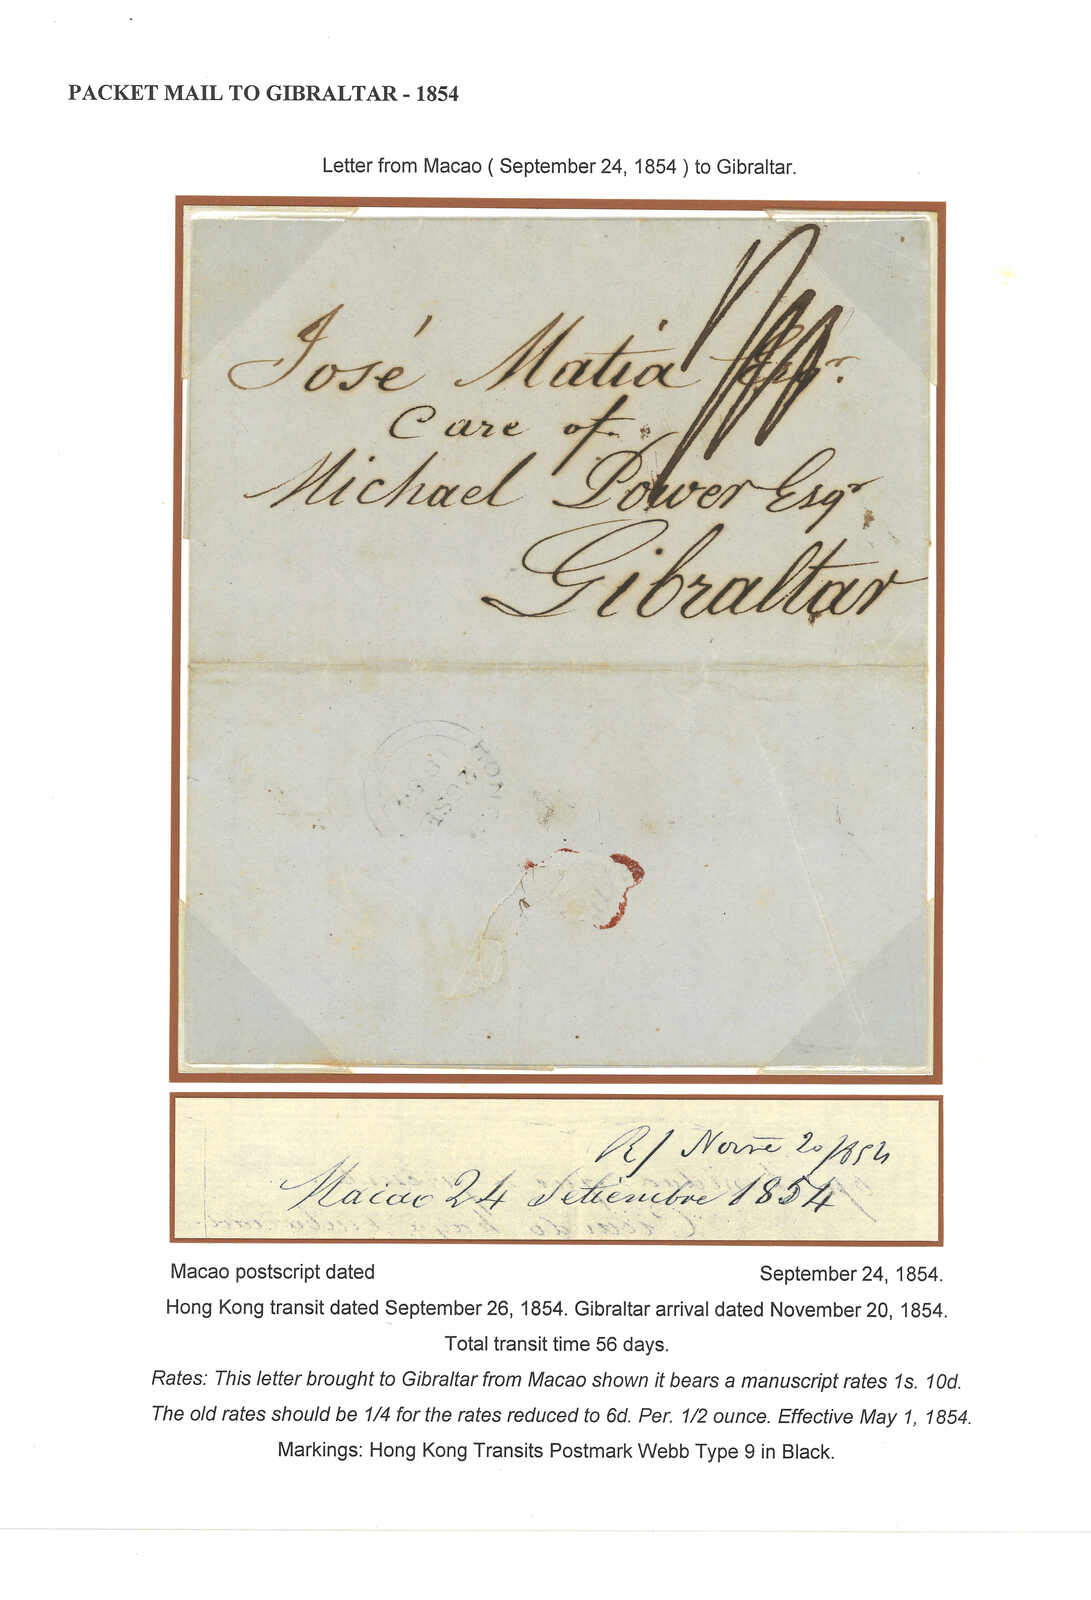 PACKET MAIL TO GIBRALTAR - 1854
Letter from Macao ( September 24, 1854 ) to Gibraltar.
José Matia Esqr.
Care of
Michael Power Esqr
Gibraltar
HONG
1854
R/ Novre 20/1854
Macao 24 Setiembre 1854
Macao postscript dated September 24, 1854.
Hong Kong transit dated September 26, 1854. Gibraltar arrival dated November 20, 1854.
Total transit time 56 days.
Rates: This letter brought to Gibraltar from Macao shown it bears a manuscript rates 1s. 10d.
The old rates should be 1/4 for the rates reduced to 6d. Per. 1/2 ounce. Effective May 1, 1854.
Markings: Hong Kong Transits Postmark Webb Type 9 in Black.